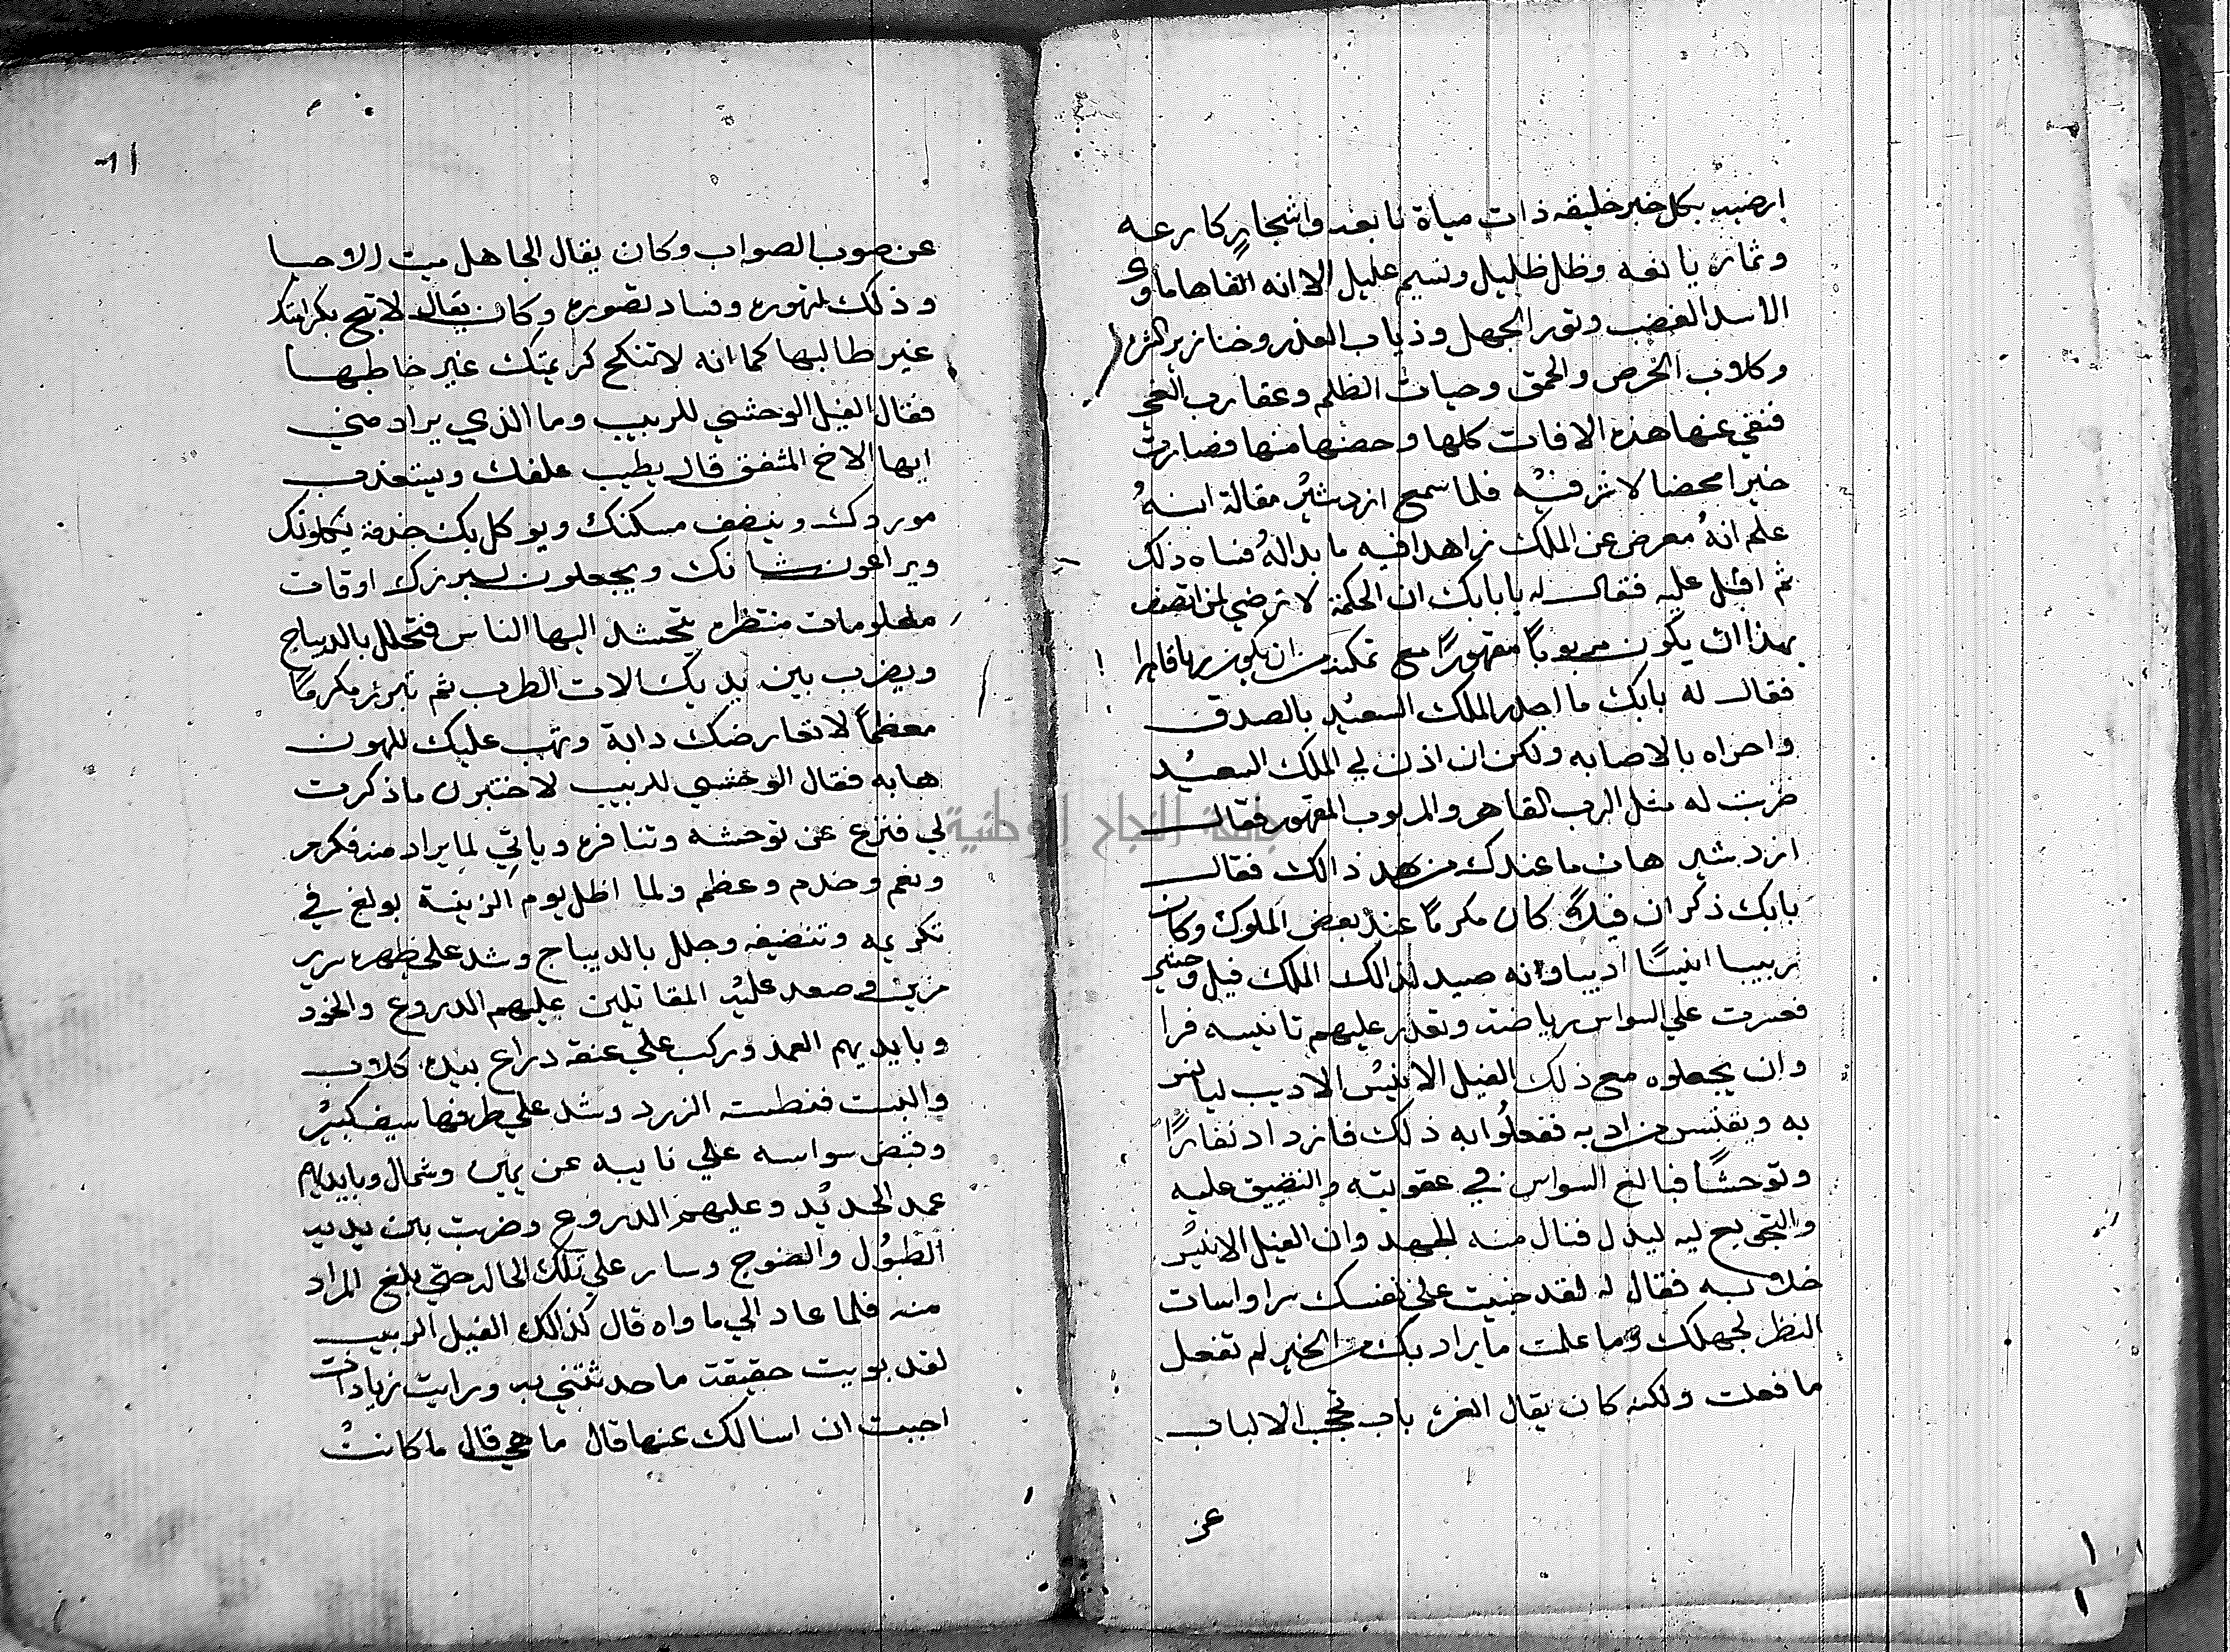 ارضيه بكل خير خليقه ذات مياة نابعه واشجارٍ كارعه
وثمار يانعه وظل ظليل ونسيم عليل الا انه الفاها ماوي
الاسد الغضب ونمور الجهل وذياب الغدر وخنازير الشره
وكلاب الحرص والحمق وحيات الظلم وعقارب
فنفي عنها هذه الافات كلها وحصنها منها فصارت
خيرا محضا لا شر فيه فلما سمع ازدشير مقالة ابنه
علم انه معرض عن الملك زاهدا فيه ما بدا له فساه ذلك
ثم اقبل عليه فقال له يا بابك ان الحكمة لا ترضي لمن اتصف
بهذا ان يكون مربوبًا مقهورًا مع تمكنه من ان يكون ربا قاهرا
فقال له بابك ما اجدر الملك السعيد بالصدق
واحراه بالاصابه ولكن ان اذن لي الملك السعيد
ضربت له مثل الرب القاهر والمربوب المقهور فقال
ازدشير هات ما عندك من هذ ذالك فقال
بابك ذكر ان فيلاً كان مكرمًا عند بعض الملوك وكان
ربيبا انيسًا اديبا وانه صيد لذالك الملك فيل وحشي
فعسرت علي السواس رياضته وتعذر عليهم تانيسه فراوا
وان يجعلوه مع ذلك الفيل الانيس الاديب ليانس
به ويقتبس من ادبه ففعلوا به ذلك فازداد نفارًا
وتوحشًا فبالغ السواس في عقوبته والتضييق عليه
والتجويع ليه ليذل فنال منه الجهد وان الفيل الانيس
خلا به فقال له لقد جنيت علي نفسك سرا واسات
النظر لجهلك وما علمت ما يراد بك من الخير لم تفعل
ما فعلت ولكنه كان يقال الغره باب تحجب الالباب
عن
٦١
عن صوب الصواب وكان يقال الجاهل ميت الاحيا
وذلك لتهوره وفساد تصوره وكان يقال لا تبح بكرامتك
غير طالبها كما انه لا تنكح كريمتك غير خاطبها
فقال الفيل الوحشي للربيب وما الذي يراد مني
ايها الاخ المشفق قال يطيب علفك ويستعذب
موردك وينضف مسكنك ويوكل بك خدمة يكلونك
ويراعون شانك ويجعلون لبروزك اوقات
معلومات منتظره يتحشد اليها الناس فتجلل بالديباج
ويضرب بين يديك الات الطرب ثم تبرز مكرمًا
معظمًا لا تعارضك دابة وتهب عليك للهون
هابه فقال الوحشي للربيب لاختبرن ما ذكرت
لي فنزع عن توحشه وتنافره وياتي لما يراد منه فكرم
ونعم وخدم وعظم ولما اظل يوم الزينة بولغ في
تكريمه وتنضيفه وجلل بالديباج وشد علي ظهره سرير
مزين وصعد عليه المقاتلين عليهم الدروع والخود
وبايديهم العمد وركب علي عنقه دراع بيده كلاب
والبست فنطسته الزرد وشد علي طرفها سيف كبير
وقبض سواسه علي نابيه عن يمين وشمال وبايديهم
عمد الحديد وعليهم الدروع وضربت بين يديه
الطبول والصنوج وسار علي تلك الحاله حتي بلغ المراد
منه فلما عاد الي ماواه قال لذالك الفيل الربيب
لقد حقيقة ما حدثتني به ورايت زيادات
احببت ان اسالك عنها قال ما هي قال ما كانت